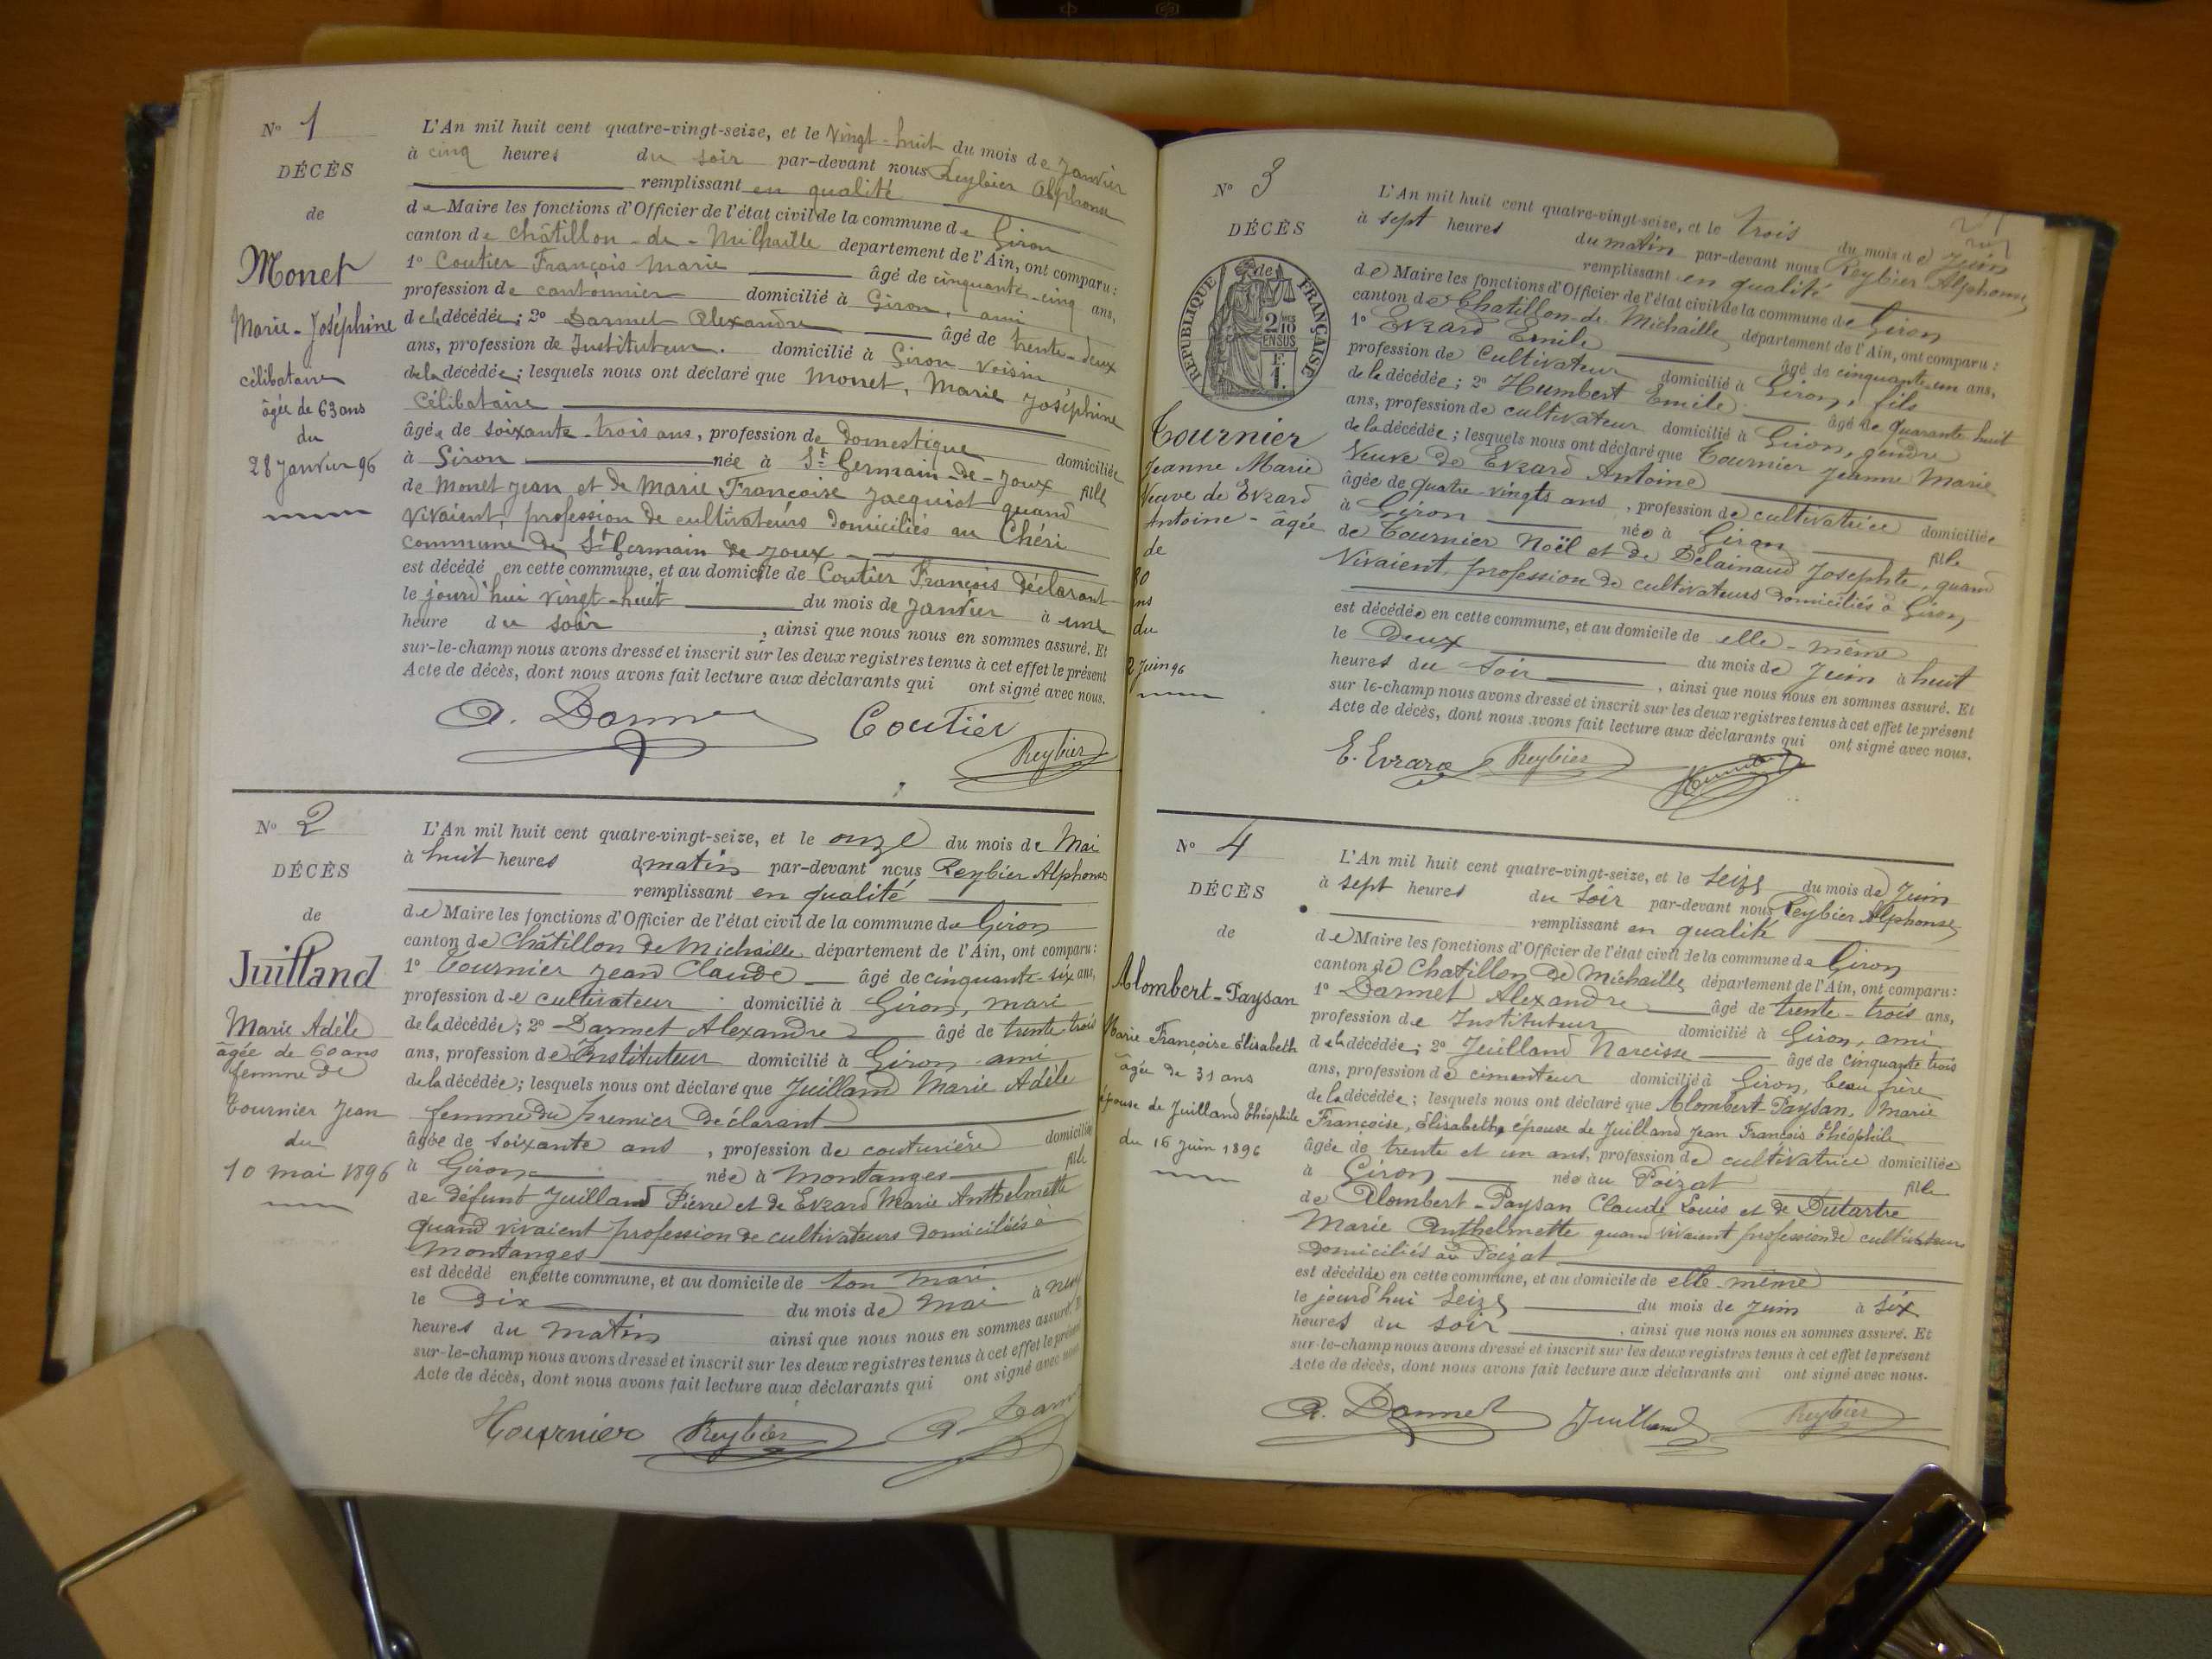 N° 1
DÉCÈS
de
Monet
Marie-Joséphine
célibataire
âgée de 63 ans
du
28 Janvier 96
L'An mil huit cent quatre-vingt-seize, et le vingt-huit du mois de Janvier
à cinq heures du soir par-devant nous Reybier Alphonse
remplissant en qualité
de Maire les fonctions d'Officier de l'état civil de la commune de Giron
canton de Châtillon-de-Michaille département de l'Ain, ont comparu :
1° Coutier François Marie âgé de cinquante-cinq ans,
profession de cantonnier domicilié à Giron, ami
de la décédée ; 2° Darmet Alexandre âgé de trente-deux
ans, profession de Instituteur. domicilié à Giron voisin
de la décédée ; lesquels nous ont déclaré que Monet, Marie Joséphine
Célibataire
âgée de soixante-trois ans, profession de domestique domiciliée
à Giron née à St Germain-de-Joux fille
de Monet Jean et de Marie Françoise Jacquiot quand
vivaient, profession de cultivateurs domiciliés au Chéri
commune de St Germain de Joux
est décédé en cette commune, et au domicile de Coutier François déclarant
le jourd'hui vingt-huit du mois de Janvier à une
heure du soir, ainsi que nous nous en sommes assuré. Et
sur-le-champ nous avons dressé et inscrit sur les deux registres tenus à cet effet le présent
Acte de décès, dont nous avons fait lecture aux déclarants qui ont signé avec nous.
A. Darmet Coutier
Reybier
N° 2
DÉCÈS
de
Juilland
Marie Adèle
âgée de 60 ans
femme de
Tournier Jean
du
10 mai 1896
L'An mil huit cent quatre-vingt-seize, et le onze du mois de Mai
à huit heures du matin par-devant nous Reybier Alphonse
remplissant en qualité
de Maire les fonctions d'Officier de l'état civil de la commune de Giron
canton de Châtillon de Michaille département de l'Ain, ont comparu :
1° Tournier Jean Claude âgé de cinquante-six ans,
profession de cultivateur domicilié à Giron, mari
de la décédée ; 2° Darmet Alexandre âgé de trente trois
ans, profession de Instituteur domicilié à Giron ami
de la décédée ; lesquels nous ont déclaré que Juilland Marie Adèle
femme du premier déclarant
âgée de soixante ans, profession de couturière domiciliée
à Giron née à Montanges fille
de défunt Juilland Pierre et de Evrard Marie Anthelmette
quand vivaient profession de cultivateurs domiciliés à
Montanges
est décédé en cette commune, et au domicile de son mari
le dix du mois de Mai à neuf
heures du matin ainsi que nous nous en sommes assuré. Et
sur-le-champ nous avons dressé et inscrit sur les deux registres tenus à cet effet le présent
Acte de décès, dont nous avons fait lecture aux déclarants qui ont signé avec nous.
Tournier Reybier A. Darmet
N° 3
DÉCÈS
de
RÉPUBLIQUE FRANÇAISE
2/10 EN SUS
Tournier
Jeanne Marie
Veuve de Evrard
Antoine - âgée
de
80
ans
du
2 Juin 96
L'An mil huit cent quatre-vingt-seize, et le trois du mois de Juin
à sept heures du matin par-devant nous Reybier Alphonse,
remplissant en qualité
de Maire les fonctions d'Officier de l'état civil de la commune de Giron
canton de Chatillon-de-Michaille département de l'Ain, ont comparu :
1° Evrard Emile âgé de cinquante-un ans,
profession de Cultivateur domicilié à Giron, fils
de la décédée ; 2° Humbert Emile âgé de quarante huit
ans, profession de cultivateur domicilié à Giron, gendre
de la décédée ; lesquels nous ont déclaré que Tournier Jeanne Marie
Veuve de Evrard Antoine
âgée de quatre-vingts ans, profession de cultivatrice domiciliée
à Giron née à Giron fille
de Tournier Noël et de Delainaud Josephte, quand
Vivaient, profession de cultivateurs domiciliés à Giron
est décédée en cette commune, et au domicile de elle-même
le Deux du mois de Juin à huit
heures du soir, ainsi que nous nous en sommes assuré. Et
sur-le-champ nous avons dressé et inscrit sur les deux registres tenus à cet effet le présent
Acte de décès, dont nous avons fait lecture aux déclarants qui ont signé avec nous.
E. Evrard Reybier Humbert
N° 4
DÉCÈS
de
Alombert-Paysan
Marie Françoise Elisabeth
âgée de 31 ans
épouse de Juilland Théophile
du 16 Juin 1896
L'An mil huit cent quatre-vingt-seize, et le seize du mois de Juin
à sept heures du soir par-devant nous Reybier Alphonse,
remplissant en qualité
de Maire les fonctions d'Officier de l'état civil de la commune de Giron
canton de Chatillon de Michaille département de l'Ain, ont comparu :
1° Darmet Alexandre âgé de trente-trois ans,
profession de Instituteur domicilié à Giron, ami
de la décédée ; 2° Juilland Narcisse âgé de cinquante trois
ans, profession de cimenteur domicilié à Giron, beau frère
de la décédée ; lesquels nous ont déclaré que Alombert-Paysan, Marie
Françoise, Elisabeth, épouse de Juilland Jean François Théophile
âgée de trente et un ans, profession de cultivatrice domiciliée
à Giron née au Poizat fille
de Alombert-Paysan Claude Louis et de Dutartre
Marie Anthelmette quand vivaient profession de cultivateurs
domiciliés au Poizat
est décédée en cette commune, et au domicile de elle-même
le jourd'hui seize du mois de Juin à six
heures du soir, ainsi que nous nous en sommes assuré. Et
sur-le-champ nous avons dressé et inscrit sur les deux registres tenus à cet effet le présent
Acte de décès, dont nous avons fait lecture aux déclarants qui ont signé avec nous.
A. Darmet Juilland Reybier